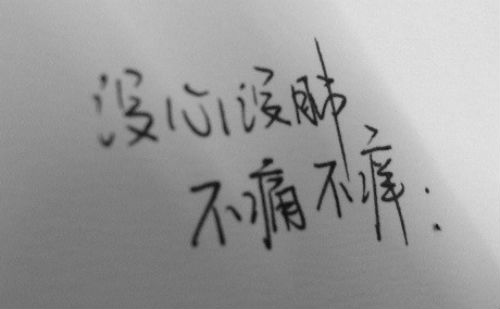 没心没肺
不痛不痒.